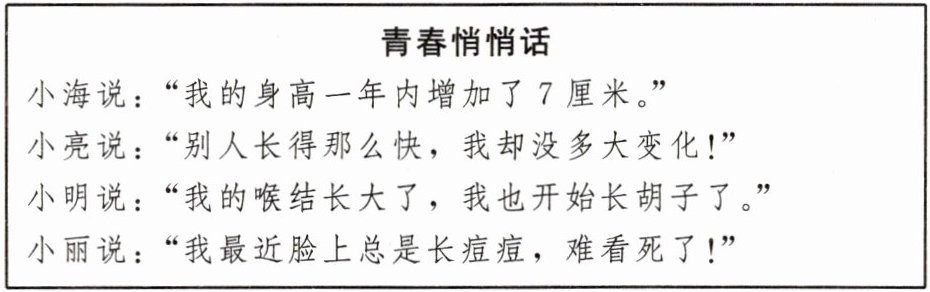 青春悄悄话
小海说：“我的身高一年内增加了7厘米。”
小亮说：“别人长得那么快，我却没多大变化！”
小明说：“我的喉结长大了，我也开始长胡子了。”
小丽说：“我最近脸上总是长痘痘，难看死了！”